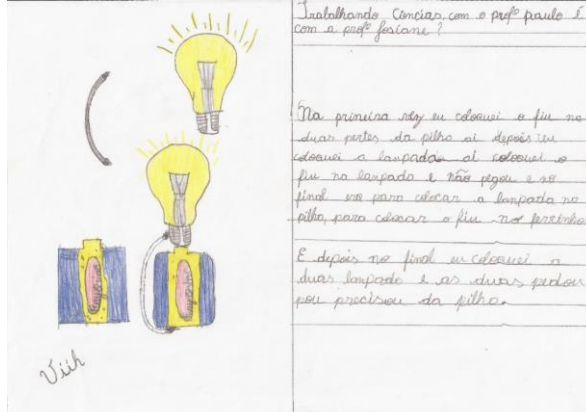 Trabalhando Ciências com o profº paulo é
com a profº Josiane?
Na primeira vez eu coloquei o fiu no
duas partes da pilha ai depois eu
coloquei a lampada ai coloquei o
fiu na lampada e não pegou e no
final era para colocar a lampada na
pilha, para colocar o fiu no ferrinho
E depois no final eu coloquei a
duas lampada e as duas
precisou da pilha.
Viih